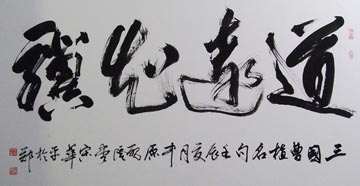 道遠知驥
三國曹植名句壬辰夏月中原堂宋華平於鄭